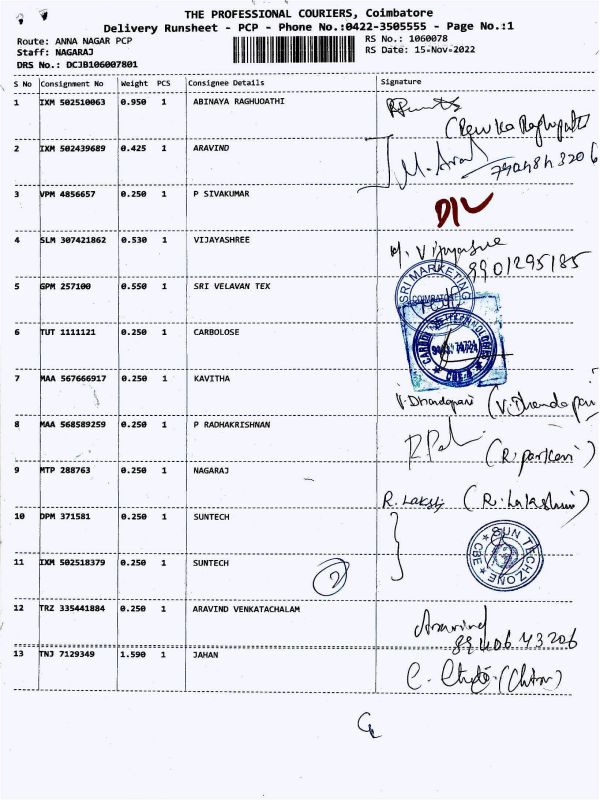 THE PROFESSIONAL COURIERS, Coimbatore
Delivery Runsheet - PCP - Phone No.:0422-3505555 - Page No.:1
Route: ANNA NAGAR PCP
RS No.: 1060078
Staff: NAGARAJ
RS Date: 15-Nov-2022
DRS No.: DCJB106007801
S No Consignment No Weight PCS Consignee Details Signature
1 IXM 502510063 0.950 1 ABINAYA RAGHUOATHI
(Renuka Raghupathi
2 IXM 502439689 0.425 1 ARAVIND
3 VPM 4856657 0.250 1 P SIVAKUMAR
4 SLM 307421862 0.530 1 VIJAYASHREE
9901295185
5 GPM 257100 0.550 1 SRI VELAVAN TEX
SRI MARKETING
COIMBATORE
6 TUT 1111121 0.250 1 CARBOLOSE
7 MAA 567666917 0.250 1 KAVITHA
8 MAA 568589259 0.250 1 P RADHAKRISHNAN
9 MTP 288763 0.250 1 NAGARAJ
(R. Lakshmi)
10 DPM 371581 0.250 1 SUNTECH
SUN TECHZONE
CBE
11 IXM 502518379 0.250 1 SUNTECH
2
12 TRZ 335441884 0.250 1 ARAVIND VENKATACHALAM
Aravind
13 TNJ 7129349 1.590 1 JAHAN